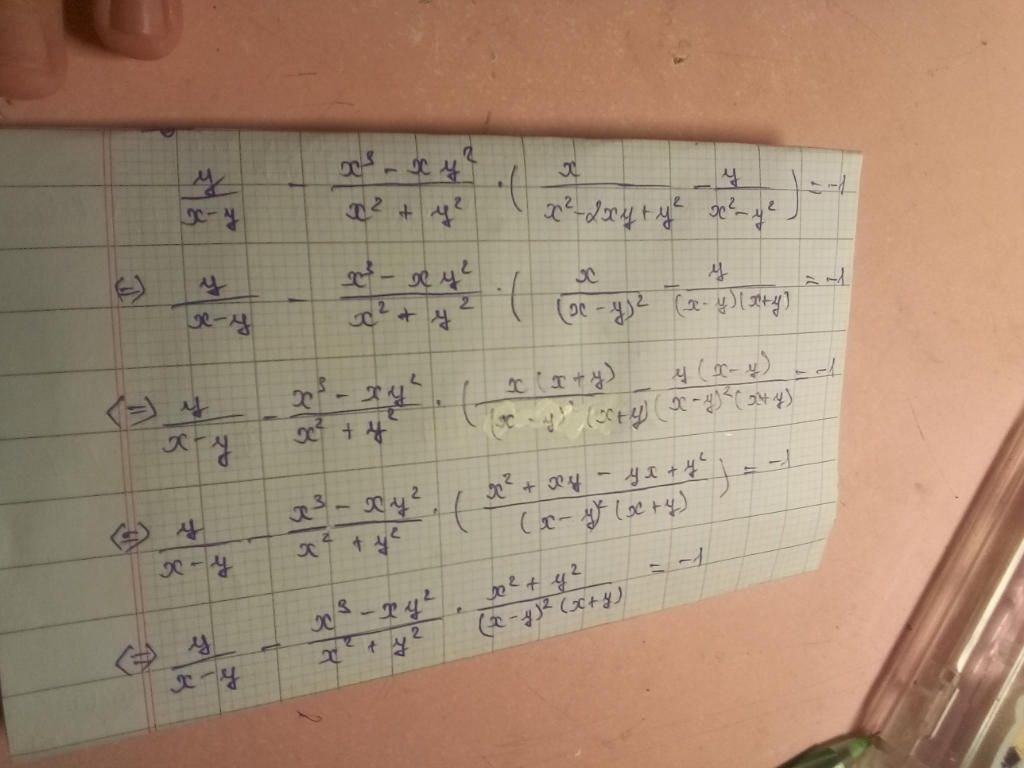 y/(x-y) - (x³ - xy²)/(x² + y²) · ( x/(x²-2xy+y²) - y/(x²-y²) ) = -1
(=) y/(x-y) - (x³ - xy²)/(x² + y²) · ( x/(x-y)² - y/((x-y)(x+y)) = -1
<=> y/(x-y) - (x³ - xy²)/(x² + y²) · ( x(x+y)/((x-y)²(x+y)) - y(x-y)/((x-y)²(x+y)) = -1
<=> y/(x-y) - (x³ - xy²)/(x² + y²) · ( (x² + xy - yx + y²)/((x-y)²(x+y)) ) = -1
<=> y/(x-y) - (x³ - xy²)/(x² + y²) · (x² + y²)/((x-y)²(x+y)) = -1